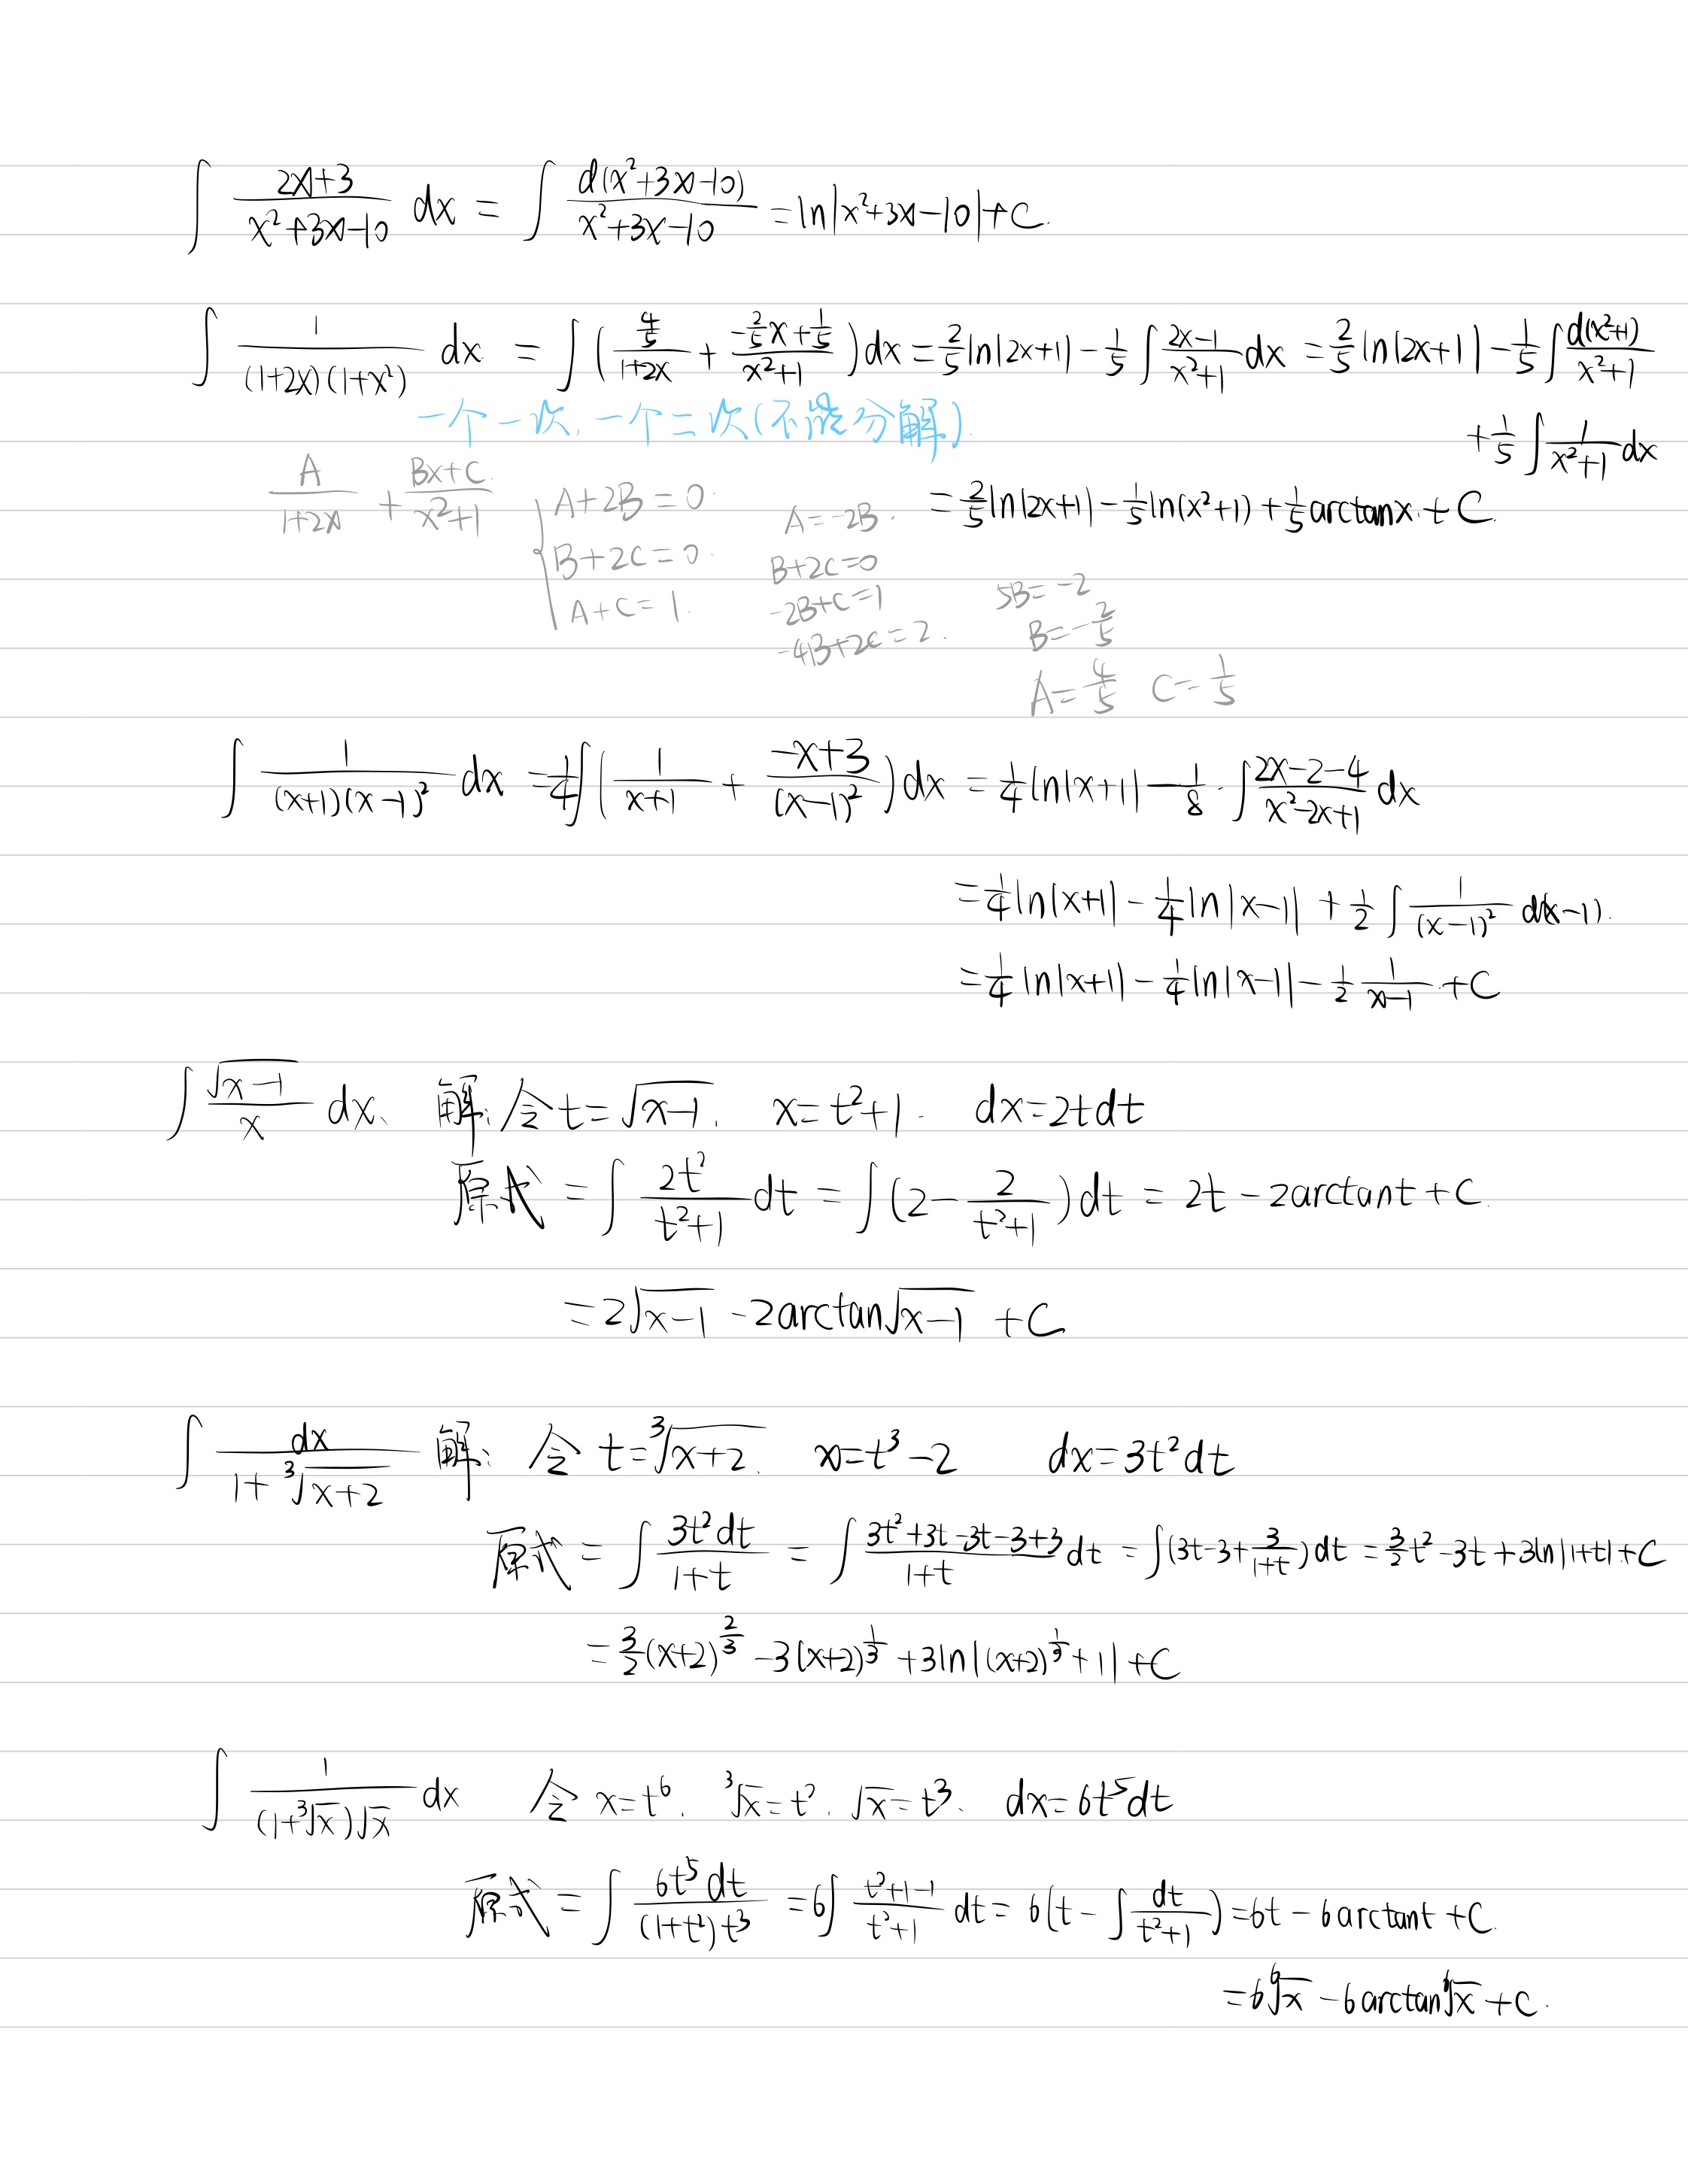 ∫ (2x+3)/(x²+3x-10) dx = ∫ d(x²+3x-10)/(x²+3x-10) = ln|x²+3x-10|+C.
∫ 1/((1+2x)(1+x²)) dx = ∫ ( (4/5)/(1+2x) + (-2/5x+1/5)/(x²+1) ) dx = 2/5 ln|2x+1| - 1/5 ∫ (2x-1)/(x²+1) dx = 2/5 ln|2x+1| - 1/5 ∫ d(x²+1)/(x²+1)
+ 1/5 ∫ 1/(x²+1) dx
一个一次,一个二次(不能分解).
= 2/5 ln|2x+1| - 1/5 ln(x²+1) + 1/5 arctanx + C.
A/(1+2x) + (Bx+C)/(x²+1)
A+2B=0.
B+2C=0.
A+C=1.
A=-2B.
B+2C=0
-2B+C=1
-4B+2C=2.
5B=-2
B=-2/5
A=4/5 C=1/5
∫ 1/((x+1)(x-1)²) dx = 1/4 ∫ ( 1/(x+1) + (-x+3)/(x-1)² ) dx = 1/4 ln|x+1| - 1/8 · ∫ (2x-2-4)/(x²-2x+1) dx
= 1/4 ln|x+1| - 1/4 ln|x-1| + 1/2 ∫ 1/(x-1)² d(x-1).
= 1/4 ln|x+1| - 1/4 ln|x-1| - 1/2 1/(x-1) + C
∫ √(x-1)/x dx、 解: 令 t=√(x-1). x=t²+1. dx=2tdt
原式 = ∫ 2t²/(t²+1) dt = ∫ (2 - 2/(t²+1)) dt = 2t - 2arctant + C.
= 2√(x-1) - 2arctan√(x-1) + C
∫ dx/(1+∛(x+2)) 解: 令 t=∛(x+2). x=t³-2 dx=3t²dt
原式 = ∫ 3t²dt/(1+t) = ∫ (3t²+3t-3t-3+3)/(1+t) dt = ∫ (3t-3+3/(1+t)) dt = 3/2 t² - 3t + 3ln|1+t| + C
= 3/2 (x+2)^(2/3) - 3(x+2)^(1/3) + 3ln|(x+2)^(1/3)+1| + C
∫ 1/((1+∛x)√x) dx 令 x=t⁶. ∛x=t². √x=t³. dx=6t⁵dt
原式 = ∫ 6t⁵dt/((1+t²)t³) = 6∫ (t²+1-1)/(t²+1) dt = 6(t - ∫ dt/(t²+1)) = 6t - 6arctant + C.
= 6⁶√x - 6arctan⁶√x + C.